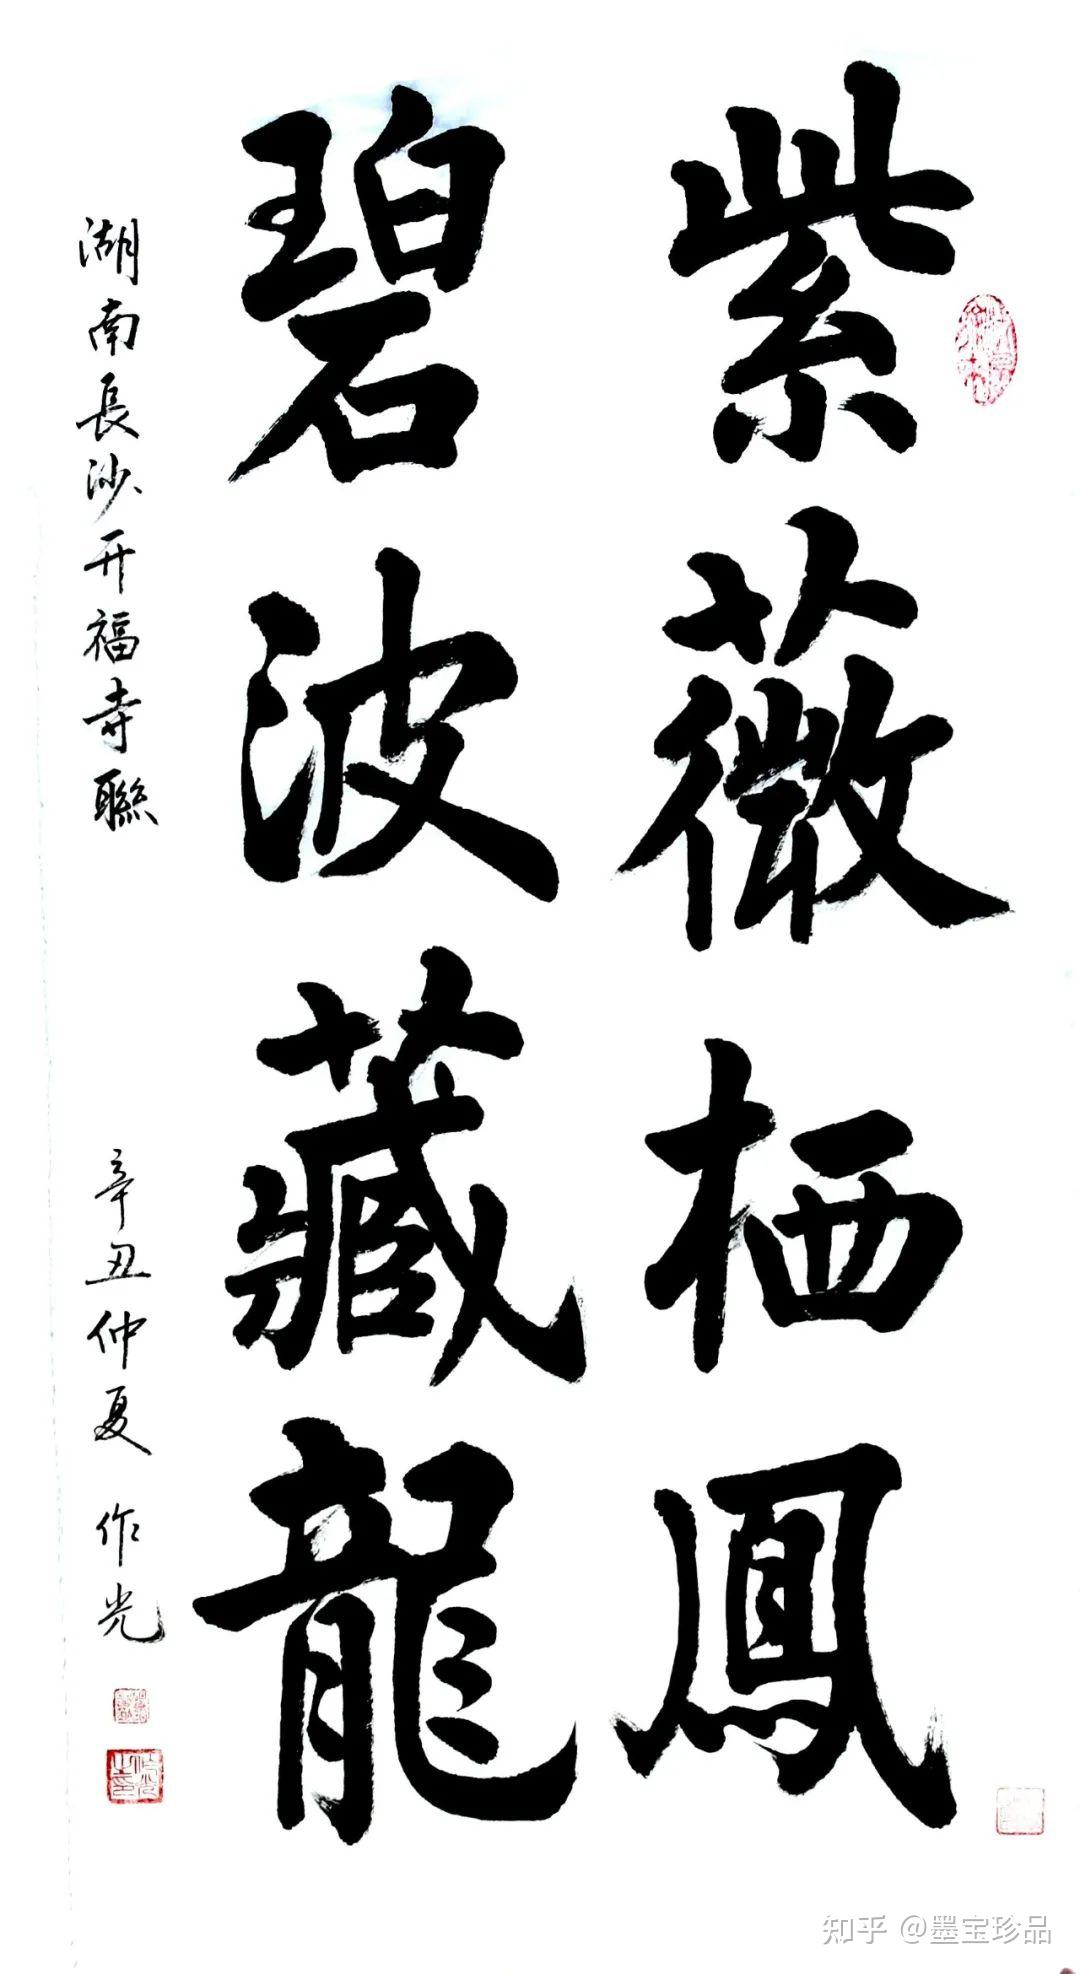 紫薇栖鳳
碧波藏龍
湖南長沙开福寺聯
辛丑仲夏 作光
知乎 @墨宝珍品